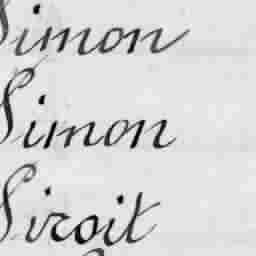 Simon
Simon
Siroit